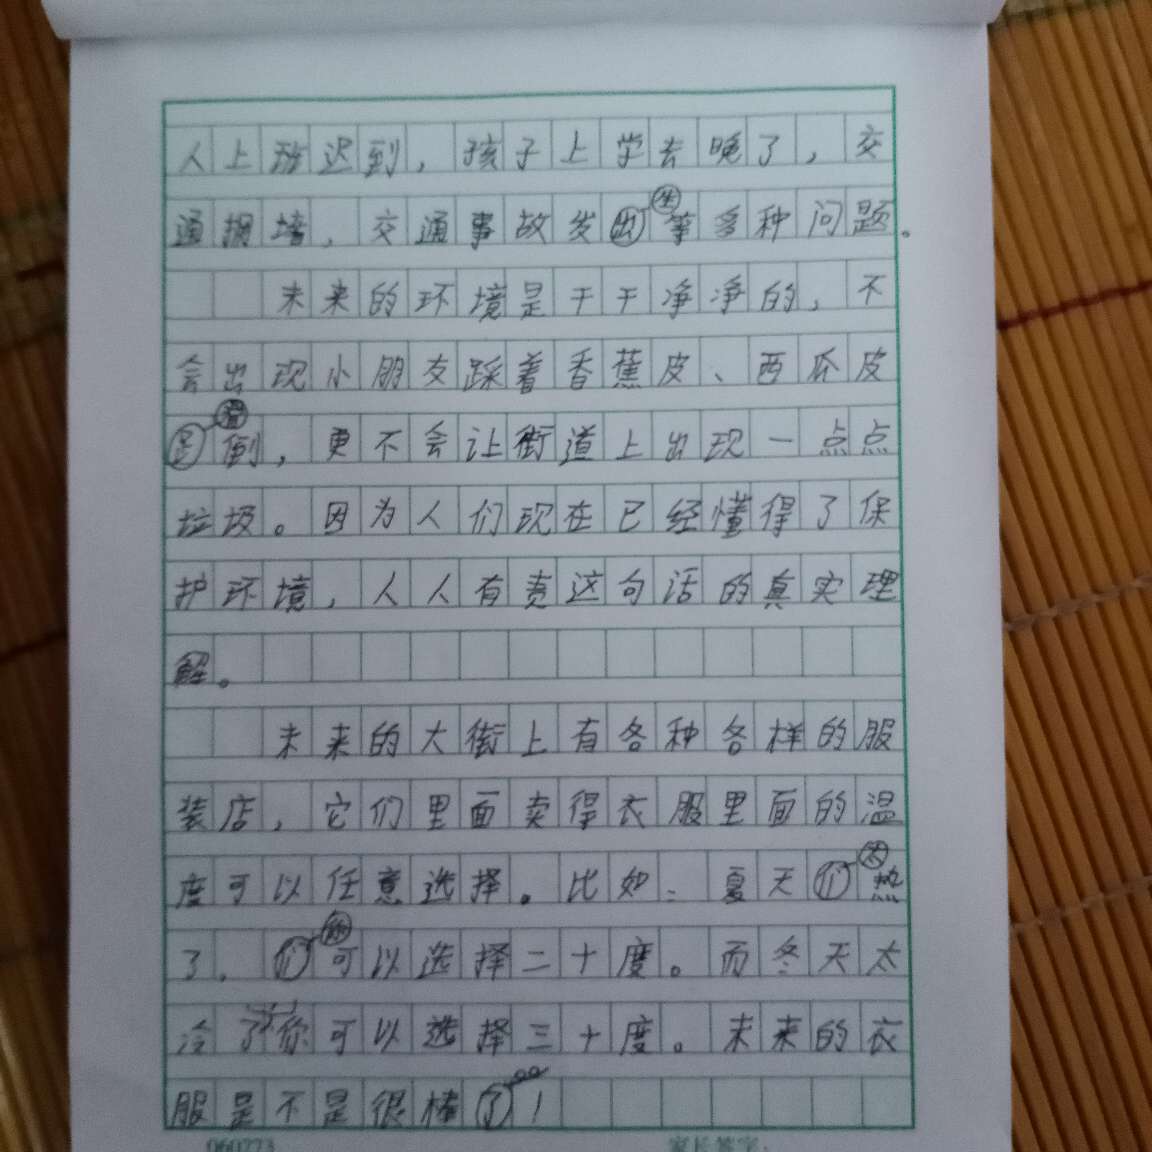 人上班迟到，孩子上学去晚了，交
通拥堵，交通事故发生等多种问题。
未来的环境是干干净净的，不
会出现小朋友踩着香蕉皮、西瓜皮
滑倒，更不会让街道上出现一点点
垃圾。因为人们现在已经懂得了保
护环境，人人有责这句话的真实理
解。
未来的大街上有各种各样的服
装店，它们里面卖得衣服里面的温
度可以任意选择。比如：夏天太热
了，你可以选择二十度。而冬天太
冷了你可以选择三十度。未来的衣
服是不是很棒！
060773
家长签字：